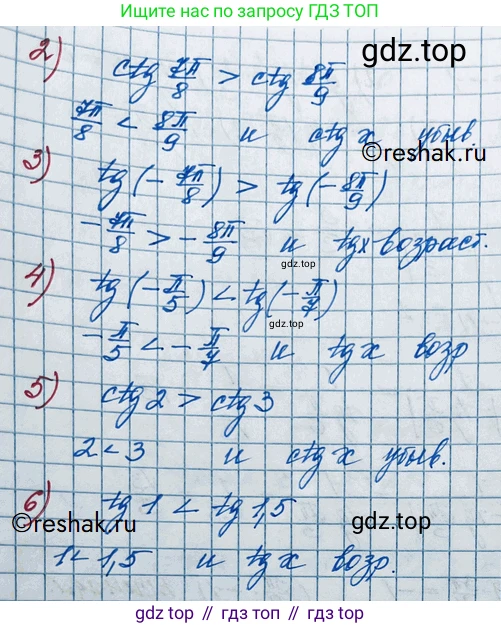 Ищите нас по запросу ГДЗ ТОП
2) ctg 7π/8 > ctg 8π/9
gdz.top
7π/8 < 8π/9 и ctg x убыв.
©reshak.ru
3) tg(-7π/8) > tg(-8π/9)
gdz.top
-7π/8 > -8π/9 и tgx-возраст.
gdz.top
4) tg(-π/5) < tg(-π/7)
-π/5 < -π/7 и tg x возр
5) ctg 2 > ctg 3
2 < 3 и ctg x убыв.
6) tg 1 < tg 1,5
©reshak.ru
gdz.top
1 < 1,5 и tg x возр.
gdz.top // гдз.top // gdz.top